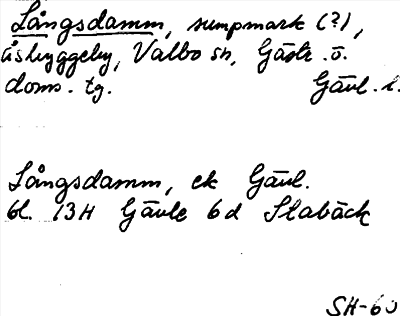 Långsdamm, sumpmark (?),
Åsbyggeby, Valbo sn, Gästr. ö.
doms. tg. Gävl. l.
Långsdamm, ek Gävl.
bl. 13H Gävle 6d Stabäck
SH-60